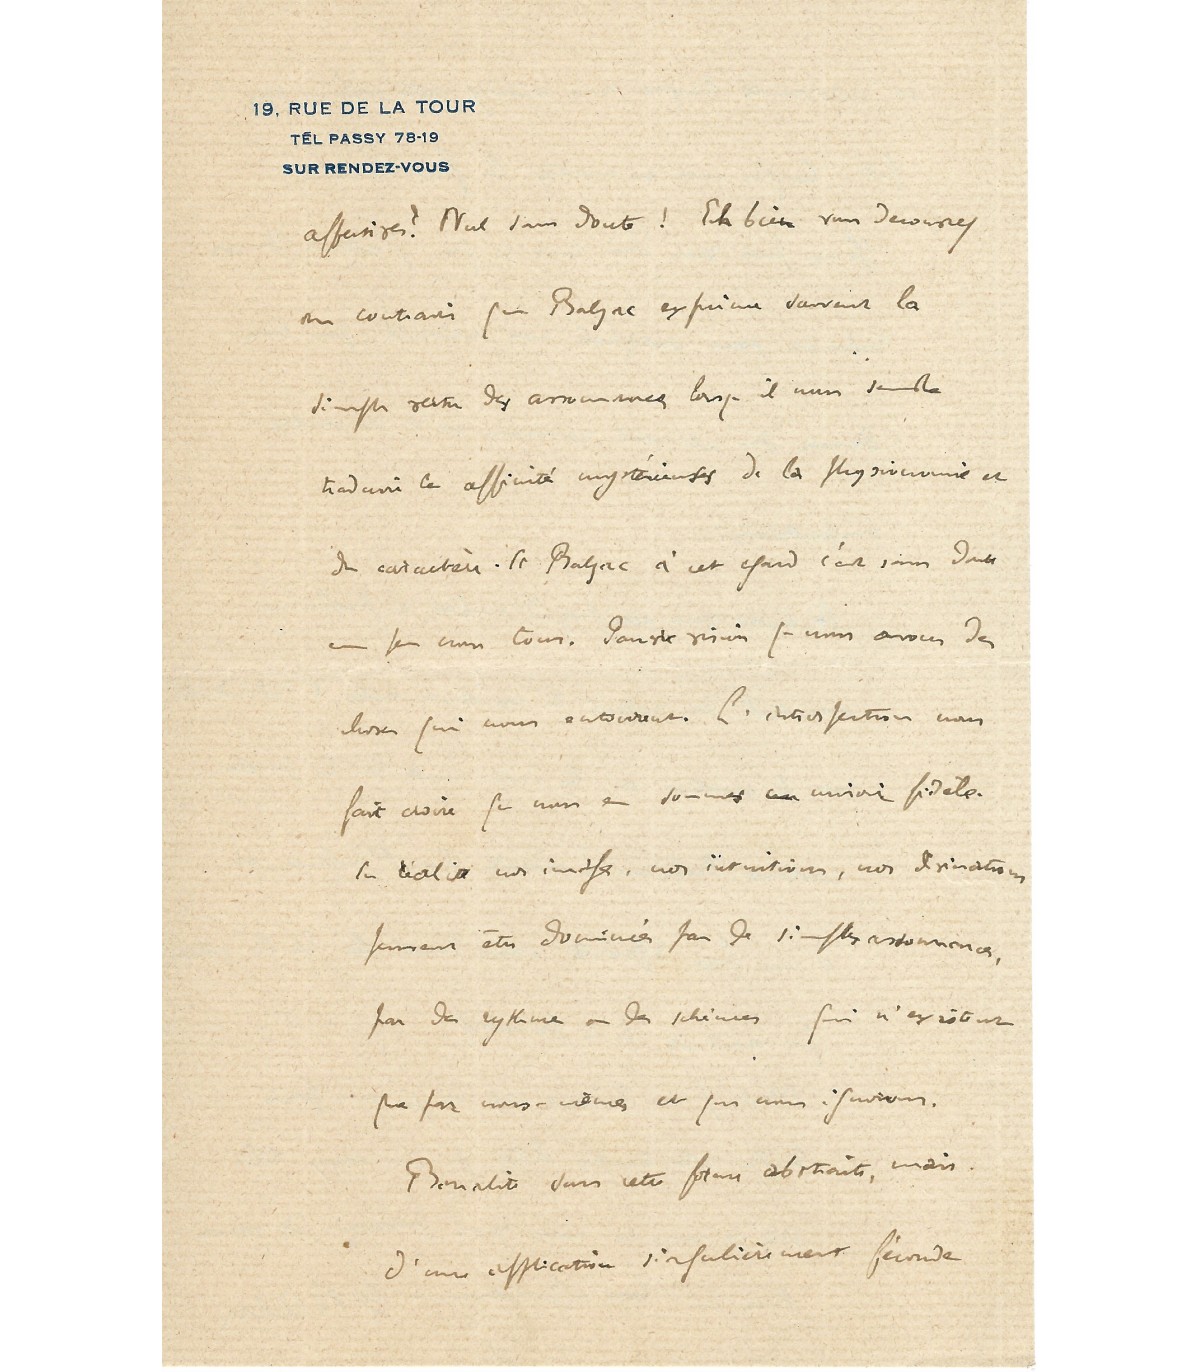 19, RUE DE LA TOUR
TÉL PASSY 78-19
SUR RENDEZ-VOUS
affectives? Nul sans doute ! Eh bien vous découvrez
au contraire que Balzac exprime souvent la
simple vertu des assonances lorsqu'il nous semble
traduire les affinités mystérieuses de la physionomie et
du caractère. Et Balzac à cet égard c'est sans doute
un peu nous tous. Dans la vision que nous avons des
choses qui nous entourent. L'introspection nous
fait croire que nous en sommes un miroir fidèle.
En réalité nos images, nos intuitions, nos divinations
peuvent être dominées par de simples assonances,
par des rythmes ou des schèmes qui n'existent
que par nous-mêmes et que nous ignorons.
Banalité sans cette forme abstraite, mais
d'une application singulièrement féconde